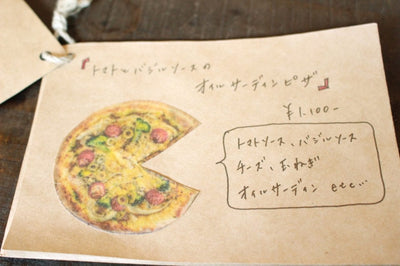 『トマトとバジルソースの
オイルサーディンピザ』
¥1.100-
トマトソース、バジルソース
チーズ、玉ねぎ
オイルサーディン etc...